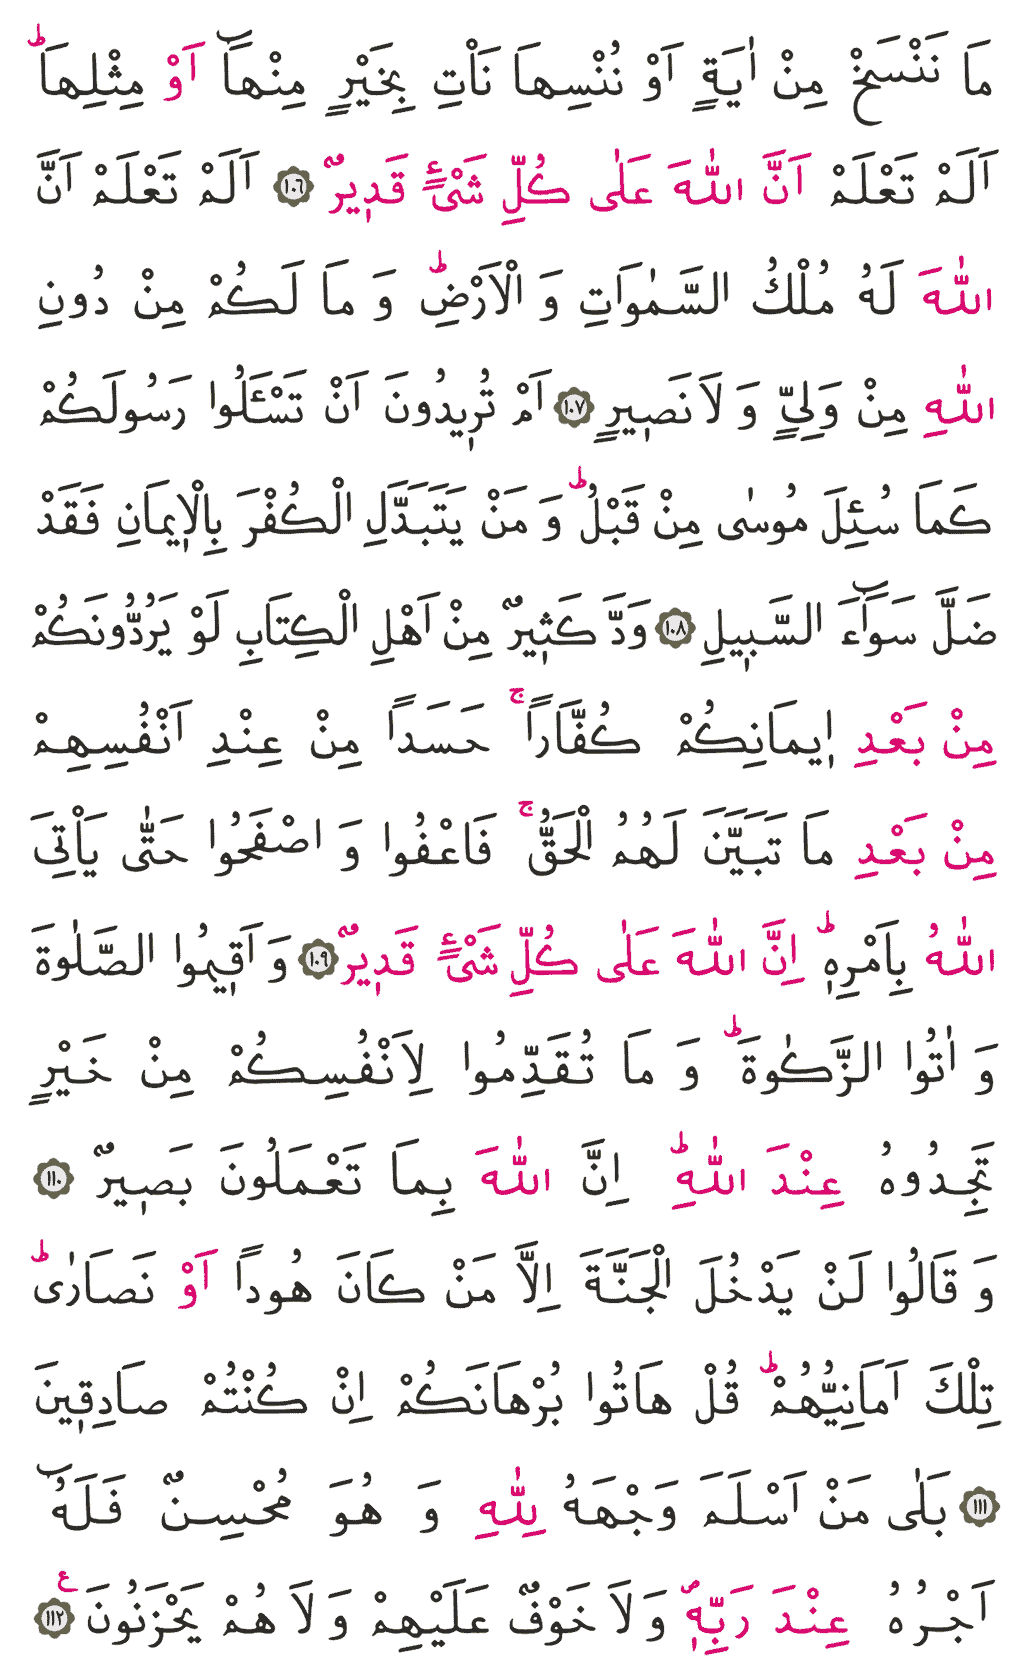 مَا نَنْسَخْ مِنْ اٰيَةٍ اَوْ نُنْسِهَا نَاْتِ بِخَيْرٍ مِنْهَآ اَوْ مِثْلِهَا ؕ
اَلَمْ تَعْلَمْ اَنَّ اللّٰهَ عَلٰى كُلِّ شَىْءٍ قَدٖيرٌ ﴿١٠٦﴾ اَلَمْ تَعْلَمْ اَنَّ
اللّٰهَ لَهُ مُلْكُ السَّمٰوَاتِ وَ الْاَرْضِ ؕ وَ مَا لَكُمْ مِنْ دُونِ
اللّٰهِ مِنْ وَلِيٍّ وَ لَا نَصٖيرٍ ﴿١٠٧﴾ اَمْ تُرٖيدُونَ اَنْ تَسْـَٔلُوا رَسُولَكُمْ
كَمَا سُئِلَ مُوسٰى مِنْ قَبْلُ ؕ وَ مَنْ يَتَبَدَّلِ الْكُفْرَ بِالْاٖيمَانِ فَقَدْ
ضَلَّ سَوَآءَ السَّبٖيلِ ﴿١٠٨﴾ وَدَّ كَثٖيرٌ مِنْ اَهْلِ الْكِتَابِ لَوْ يَرُدُّونَكُمْ
مِنْ بَعْدِ اٖيمَانِكُمْ كُفَّاراً ۚ حَسَداً مِنْ عِنْدِ اَنْفُسِهِمْ
مِنْ بَعْدِ مَا تَبَيَّنَ لَهُمُ الْحَقُّ ۚ فَاعْفُوا وَ اصْفَحُوا حَتّٰى يَاْتِىَ
اللّٰهُ بِاَمْرِهٖ ؕ اِنَّ اللّٰهَ عَلٰى كُلِّ شَىْءٍ قَدٖيرٌ ﴿١٠٩﴾ وَ اَقٖيمُوا الصَّلٰوةَ
وَ اٰتُوا الزَّكٰوةَ ؕ وَ مَا تُقَدِّمُوا لِاَنْفُسِكُمْ مِنْ خَيْرٍ
تَجِدُوهُ عِنْدَ اللّٰهِ ؕ اِنَّ اللّٰهَ بِمَا تَعْمَلُونَ بَصٖيرٌ ﴿١١٠﴾
وَ قَالُوا لَنْ يَدْخُلَ الْجَنَّةَ اِلَّا مَنْ كَانَ هُوداً اَوْ نَصَارٰى ؕ
تِلْكَ اَمَانِيُّهُمْ ؕ قُلْ هَاتُوا بُرْهَانَكُمْ اِنْ كُنْتُمْ صَادِقٖينَ
﴿١١١﴾ بَلٰى مَنْ اَسْلَمَ وَجْهَهُ لِلّٰهِ وَ هُوَ مُحْسِنٌ فَلَهُٓ
اَجْرُهُ عِنْدَ رَبِّهٖ ࣕ وَ لَا خَوْفٌ عَلَيْهِمْ وَ لَا هُمْ يَحْزَنُونَ ﴿١١٢﴾ ع